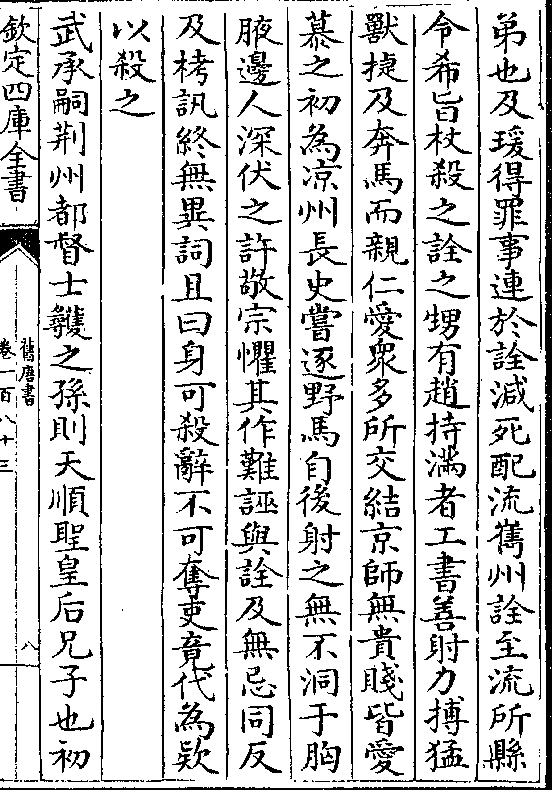 弟也及瑗得罪事連於詮減死配流雟州詮至流所縣
令希旨杖殺之詮之甥有趙持滿者工書善射力搏猛
獸捷及奔馬而親仁愛衆多所交結京師無貴賤皆愛
慕之初為凉州長史嘗逐野馬自後射之無不洞于胸
腋邊人深伏之許敬宗懼其作難誣與詮及無忌同反
及栲訊終無異詞且曰身可殺辭不可奪吏竟代為欵
以殺之
武承嗣荆州都督士彠之孫則天順聖皇后兄子也初
欽定四庫全書
舊唐書
卷一百八十三
八